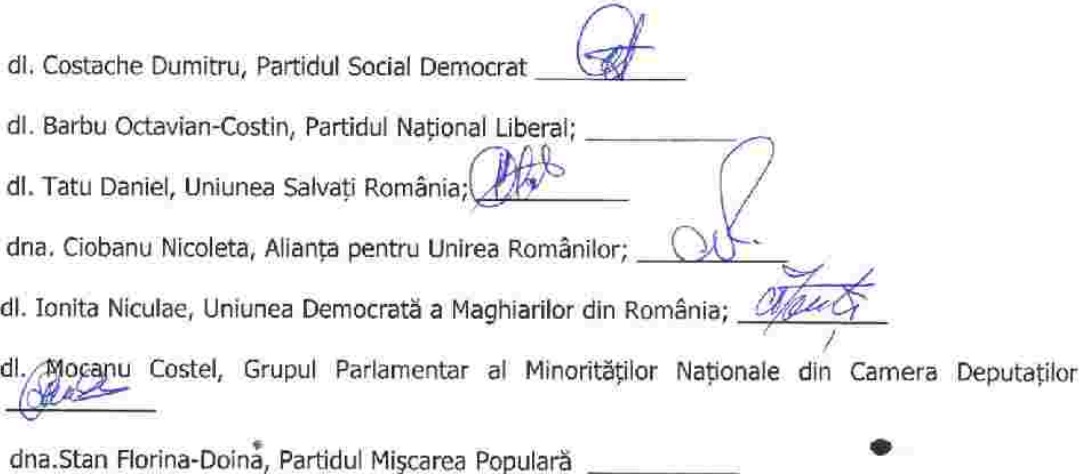 dl. Costache Dumitru, Partidul Social Democrat
dl. Barbu Octavian-Costin, Partidul Național Liberal;
dl. Tatu Daniel, Uniunea Salvați România;
dna. Ciobanu Nicoleta, Alianța pentru Unirea Românilor;
dl. Ionita Niculae, Uniunea Democrată a Maghiarilor din România;
dl. Mocanu Costel, Grupul Parlamentar al Minorităților Naționale din Camera Deputaților
dna.Stan Florina-Doina, Partidul Mişcarea Populară